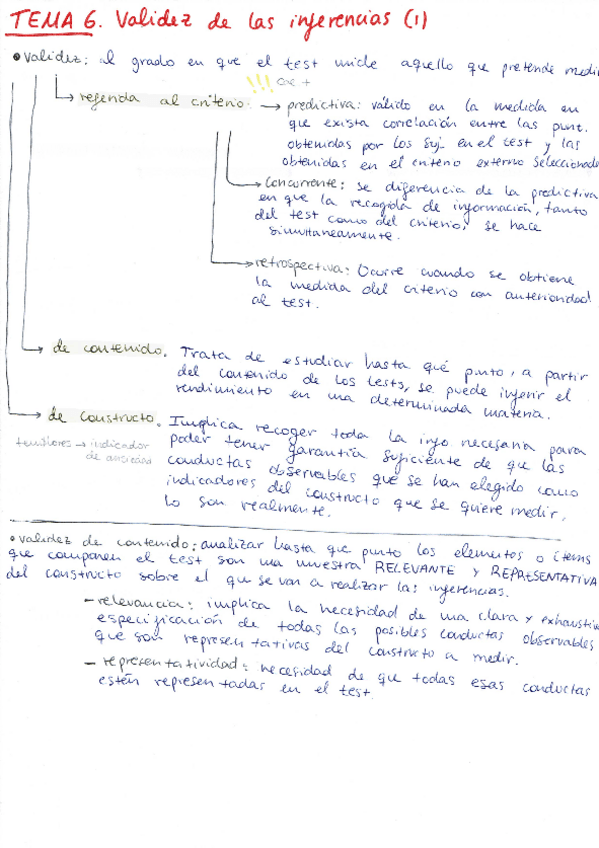 TEMA 6. Validez de las inferencias (1)
• validez: al grado en que el test mide aquello que pretende medir
!!!
→ referida al criterio: → predictiva: válido en la medida en
que exista correlación entre las punt.
obtenidas por los suj. en el test y las
obtenidas en el criterio externo seleccionado
→ concurrente: se diferencia de la predictiva
en que la recogida de información, tanto
del test como del criterio, se hace
simultáneamente.
→ retrospectiva: Ocurre cuando se obtiene
la medida del criterio con anterioridad
al test.
→ de contenido. Trata de estudiar hasta qué punto, a partir
del contenido de los tests, se puede inferir el
rendimiento en una determinada materia.
→ de constructo. Implica recoger toda la info necesaria para
poder tener garantía suficiente de que las
conductas observables que se han elegido como
indicadores del constructo que se quiere medir,
lo son realmente.
temblores → indicador
de ansiedad
• validez de contenido: analizar hasta que punto los elementos o items
que componen el test son una muestra RELEVANTE y REPRESENTATIVA
del constructo sobre el que se van a realizar las inferencias.
- relevancia: implica la necesidad de una clara y exhaustiva
especificación de todas las posibles conductas observables
que son representativas del constructo a medir.
- representatividad: necesidad de que todas esas conductas
estén representadas en el test.